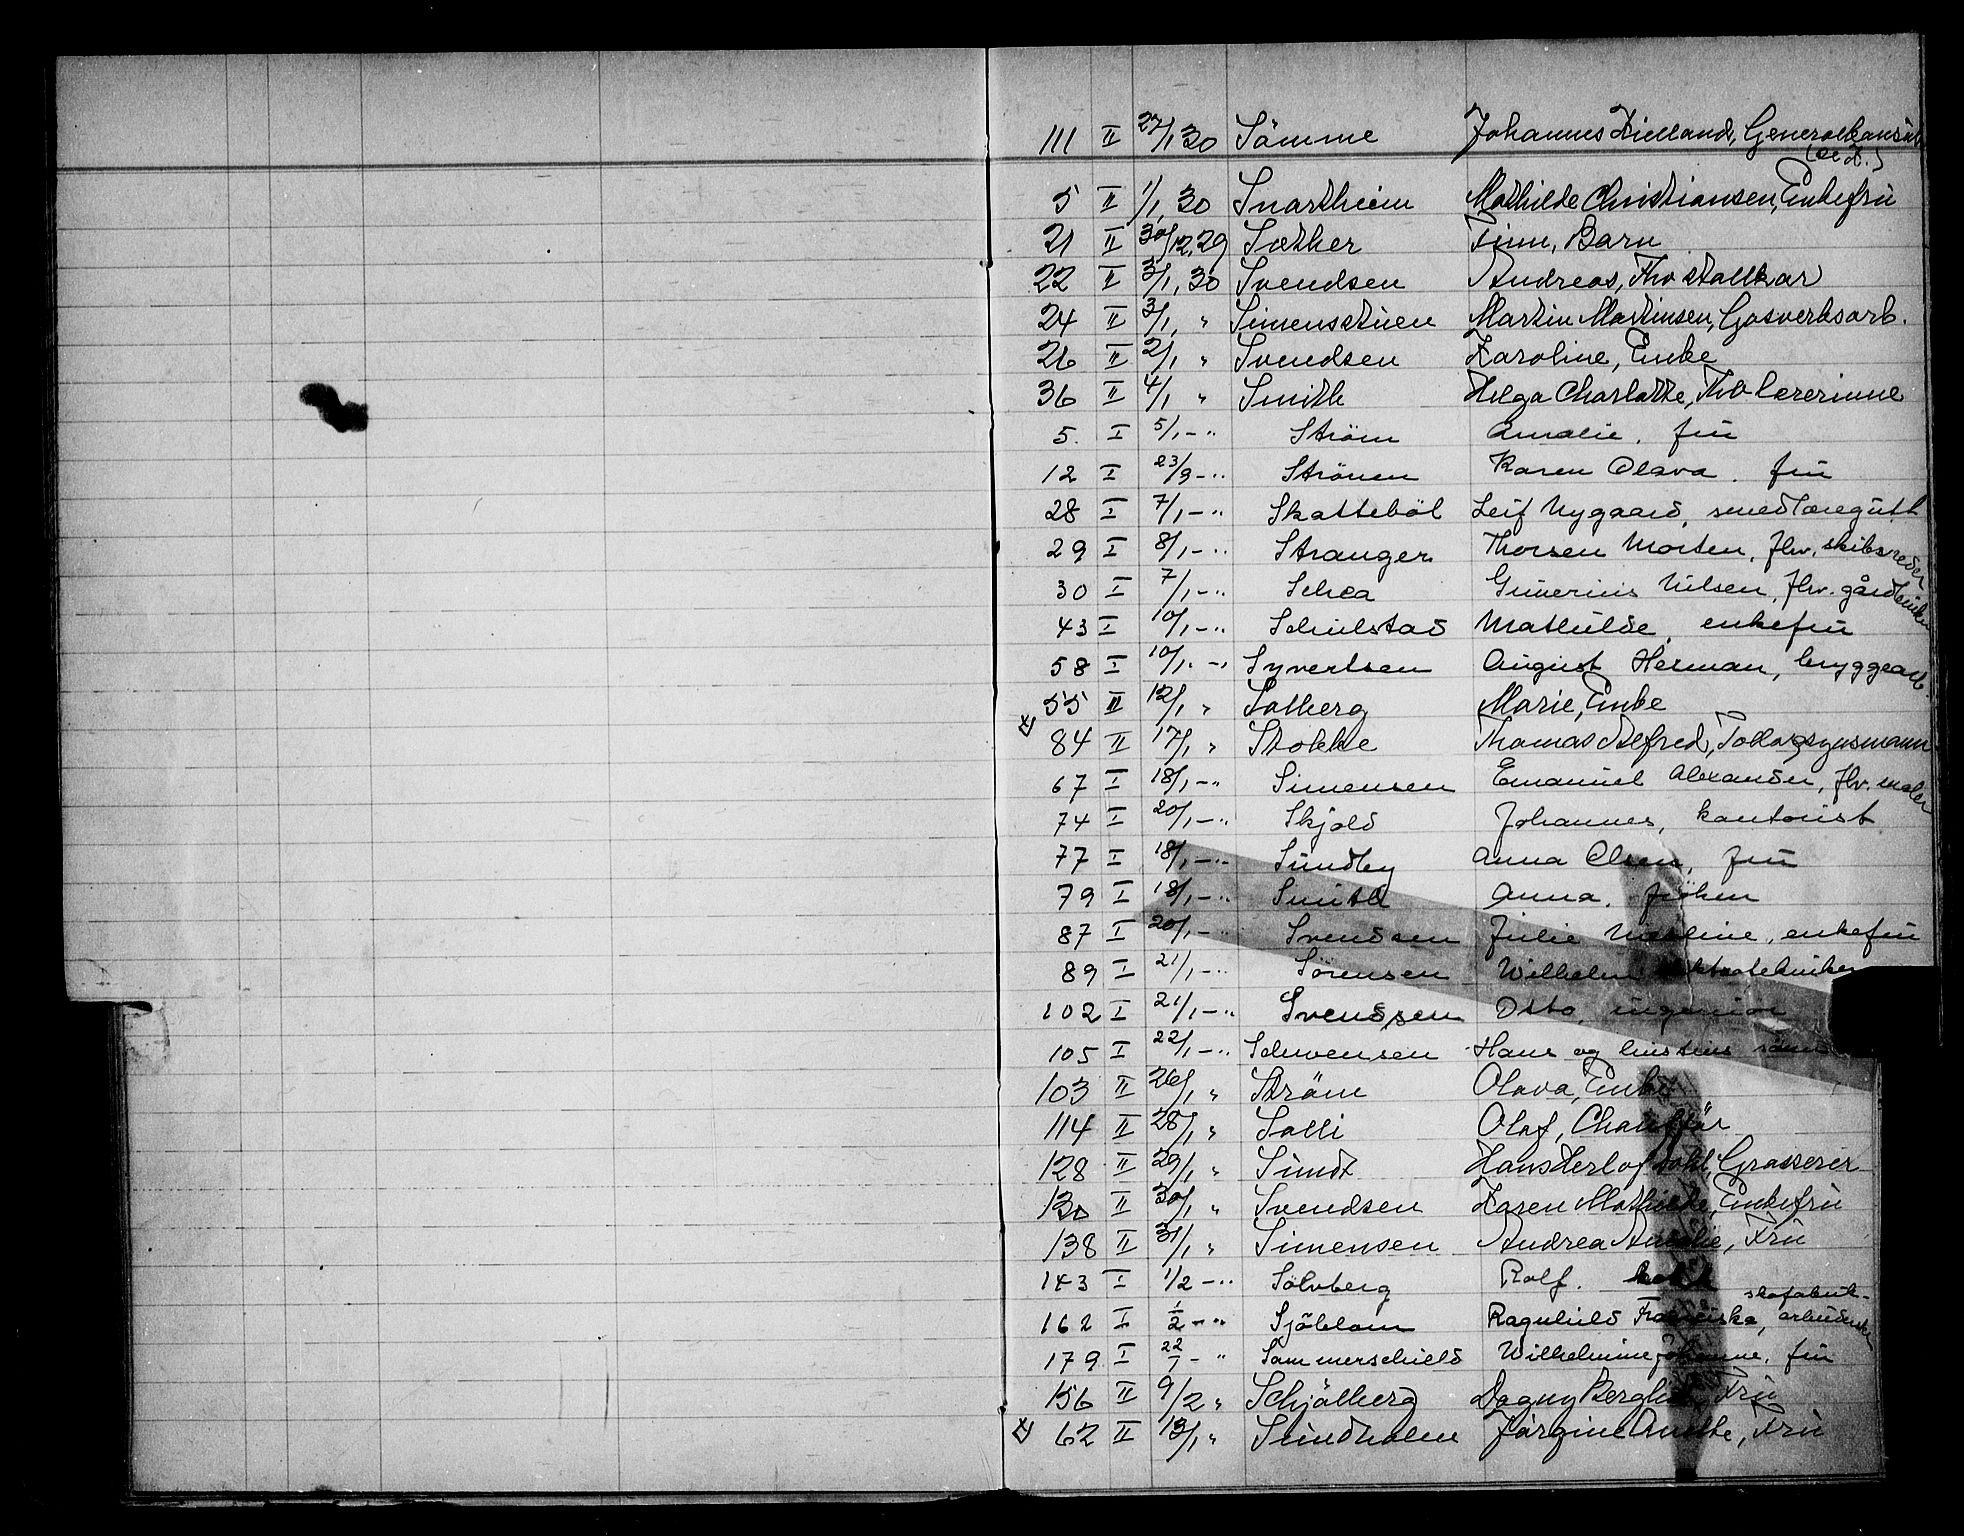 111 II 27/1 30 Sömme Johannes Kielland, Generalkonsul
5 II 1/1, 30 Svartheim Mathilde Christiansen, Enkefru
21 II 30/12, 29 Sæther Finn, Barn
22 II 3/1, 30 Svendsen Andreas, Fhv stallkar
24 II 3/1, " Simensstuen Martin Martinsen, Gasverksarb.
26 II 2/1 " Svendsen Karoline, Enke
36 II 4/1 " Smith Helga Charlotte, Fhv lærerinne
5. I 5/1 - " Strøm Amalie, fru
12 I 23/9 - " Strönen Karen Olava, fru
28 I 7/1 - " Skatteböl Leif Nygaard, smedlæregutt
29 I 8/1 - " Stranger Thorsen Morten, fhv. skibsreder
30 I 7/1 - " Schea Gunerius Nilsen, fhv. gårdbruker
43 I 10/1 - " Schulstad Mathilde, enkefru
58 I 10/1 - " Syvertsen August Herman, bryggearb
55 II 12/1 " Solberg Marie, Enke
84 II 17/1 " Stokke Thomas Alfred, Tollopsynsmann
67 I 18/1 - " Simensen Emanuel Alexander, fhv. maler
74 I 20/1 - " Skjold Johannes, kontorist
77 I 18/1 - " Sundby Anna Olsen, fru
79 I 18/1 - " Smith Anna, frøken
87 I 20/1 - " Svendsen Julie Nicoline, enkefru
89 I 21/1 - " Sörensen Wilhelm elektrotekniker
102 I 21/1 - " Svendsen Otto, ingeniør
105 I 22/1 - " Schwensen Hans og hustrus sönn
103 II 26/1 " Ström Olava, Enke
114 II 28/1 " Solli Olaf, Chauffør
128 II 29/1 " Sundt Hans Herlof Dahl, Grosserer
130 II 30/1 " Svendsen Karen Mathilde, Enkefru
138 II 31/1 " Simensen Andrea Amalie, Fru
143 I 1/2 - " Solvberg Rolf.
162 I 1/2 - " Sjöblom Ragnhild Franciska, skofabrik-arbeiderske
179 I 22/1 - " Sommerschield Wilhelmine Johanne, fru
156 II 9/2 " Schjölberg Dagny Bergliot, Fru
62 II 13/1 " Sundholm Jörgine Anette, Fru